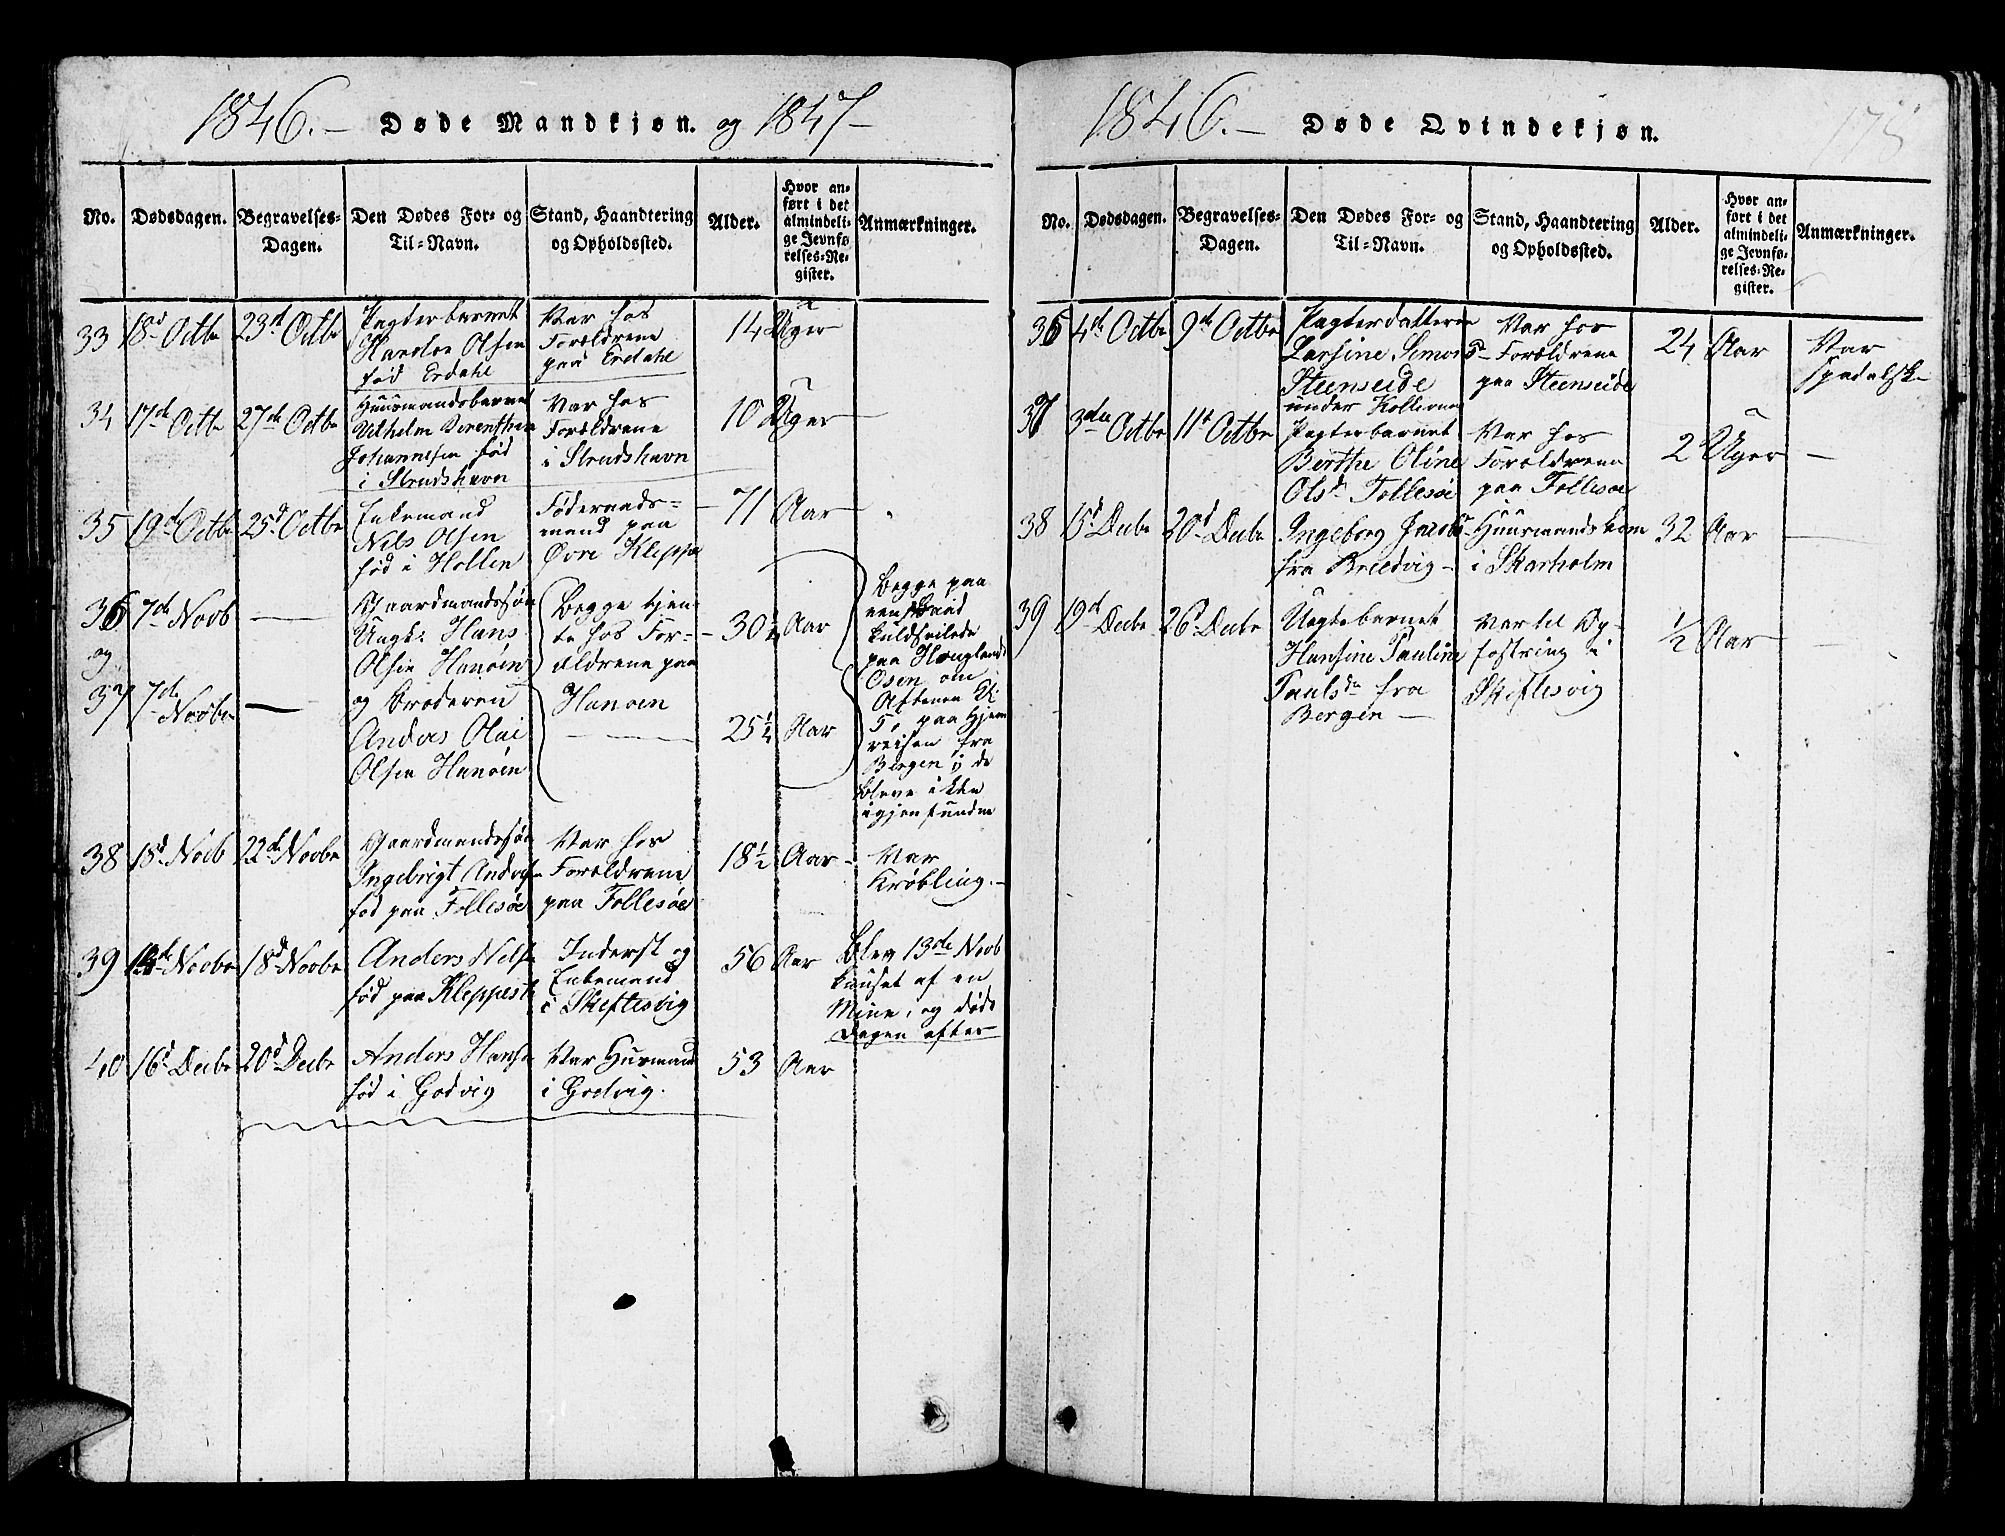 1846.— Døde Mandkjøn. og 1847—
No.
Dødsdagen.
Begravelses-Dagen.
Den Dødes For- og Til-Navn.
Stand, Haandtering og Opholdssted.
Alder.
Hvor anført i det almindelige Jevnførelses-Register.
Anmærkninger.
33 18d Octbr 23d Octbr
Pagterbarnet
Olsen
fød Erdahl
Var hos
Forældrene
paa Erdahl
14 Uger
34 17de Octbr 27de Octbr
Huusmandsbarnet
Vilhelm
Johannesen fød
i Strudshavn
Var hos
Forældrene
i Strudshavn
10 Uger —
35 19d Octbr 25d Octbr
Enkemand
Nils Olsen
fød i Hollen
Føderaads-
mand paa
Øvre Kleppe
71 Aar —
36 7de Novb —
og
37 7de Novbr —
Gaardmandssøn
Ungk: Hans
Olsen Hanøen
og Broderen
Anders Olai
Olsen Hanøen
Begge tjen-
te hos For-
ældrene paa
Hanøen
30 ½ Aar
25 ¼ Aar
Begge paa
een Baad
kuldseilede
paa
Osen om
Aftenen Kl:
5, paa Hjem
reisen fra
Bergen; de
bleve ikke
igjenfundne
38 18d Novb 22de Novbr
Gaardmandssøn
Ingebrigt Anders
fød paa Follesøe
Var hos
Forældrene
paa Follesøe
18 ½ Aar —
Var
Krøbling. —
39 14de Novbr 18d Novbr
Anders Nils
fød paa Kleppestø
Inderst og
Enkemand
i Skiftesvig
56 Aar
Blev 13de Novb
knuset af en
Mine, og døde
Dagen efter
40 16d Decbr 20d Decbr
Anders Hans
fød i Godvig
Var Husmand
i Godvig.
53 Aar
1846.— Døde Qvindekjøn.
175
No.
Dødsdagen.
Begravelses-Dagen.
Den Dødes For- og Til-Navn.
Stand, Haandtering og Opholdssted.
Alder.
Hvor anført i det almindelige Jevnførelses-Register.
Anmærkninger.
36 4de Octbr 9de Octbr
Pagterdatteren
Larsine Simons
Steenseide
under
Var hos
Forældrene
paa Steenseide
24 Aar
Var
Spedalsk
37 3die Octbr 11te Octbr
Pagterbarnet
Berthe Oline
Olsdr Follesøe
Var hos
Forældrene
paa Follesøe
2 Uger —
38 15d Decbr 20d Decbr
Ingeborg Jacobs
fra Breedvig —
Huusmandskone
i Skarholm
32 Aar —
39 19d Decbr 26d Decbr
Uægtebarnet
Hansine Pauline
Paulsdr fra
Bergen —
Var til Op-
fostring i
Skiftesvig
½ Aar —